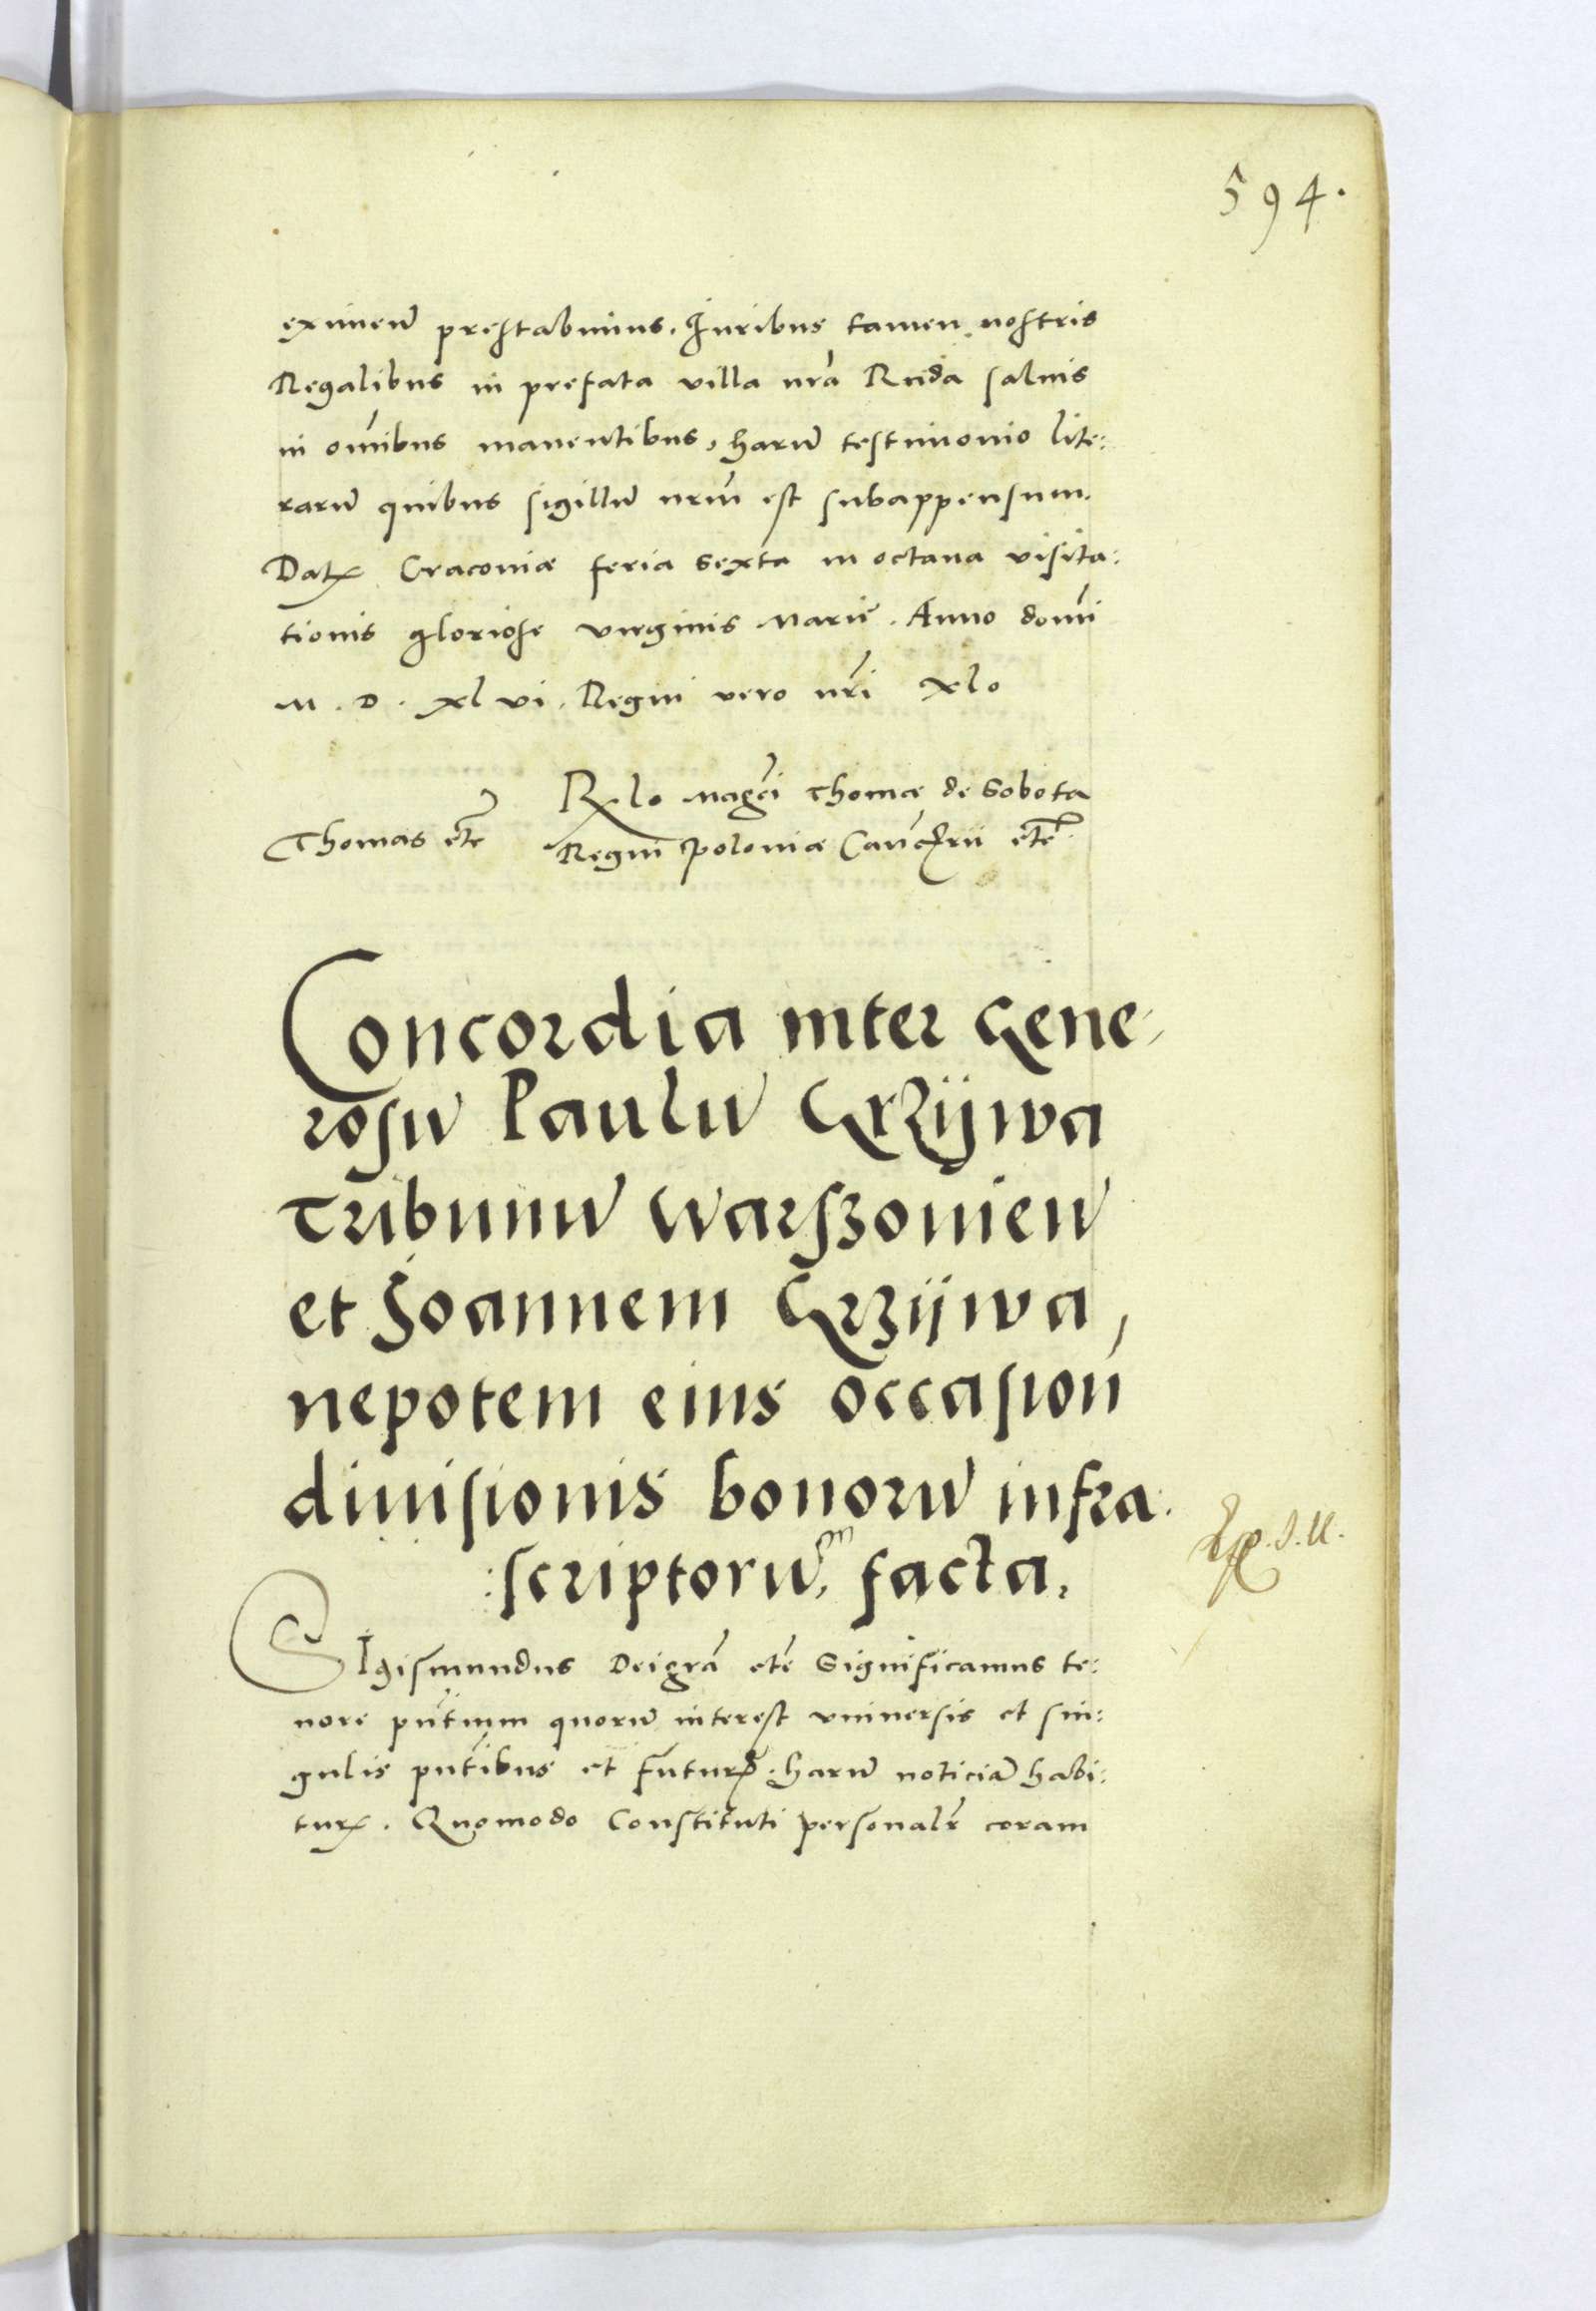 594.
eximeũ prestabimus. Iuribus tamen nostris
Regalibus in prefata villa nrã Ruda saluis
in oñibus manentibus, harũ testimonio lite:
rarũ quibus sigillũ nrũ est subappensum.
Datꝝ Cracoviæ feria sexta in octaua visita:
tionis gloriose virginis Marie. Anno domĩ
M. D. xl vi. Regni vero nrĩ xlo
Rlo Magcĩ Thomæ de Sobota
Thomas etc̃ Regni Poloniæ Canc̃rii etc̃.
Concordia inter Gene-
rosũ Paulũ Grzÿwa
Tribunũ Warszovieñ
et Joannem Grzÿwa,
nepotem eius occasioñ
diuisionis bonorũ infra:
:scriptorũ, facta.
SIgismundus Dei grã etc̃ Significamus te:
nore pñtium quorũ interest vniuersis et sin:
gulis pñtibus et futurꝝ. harũ noticiã habi:
turꝝ. Quomodo Constituti personalr̃ coram